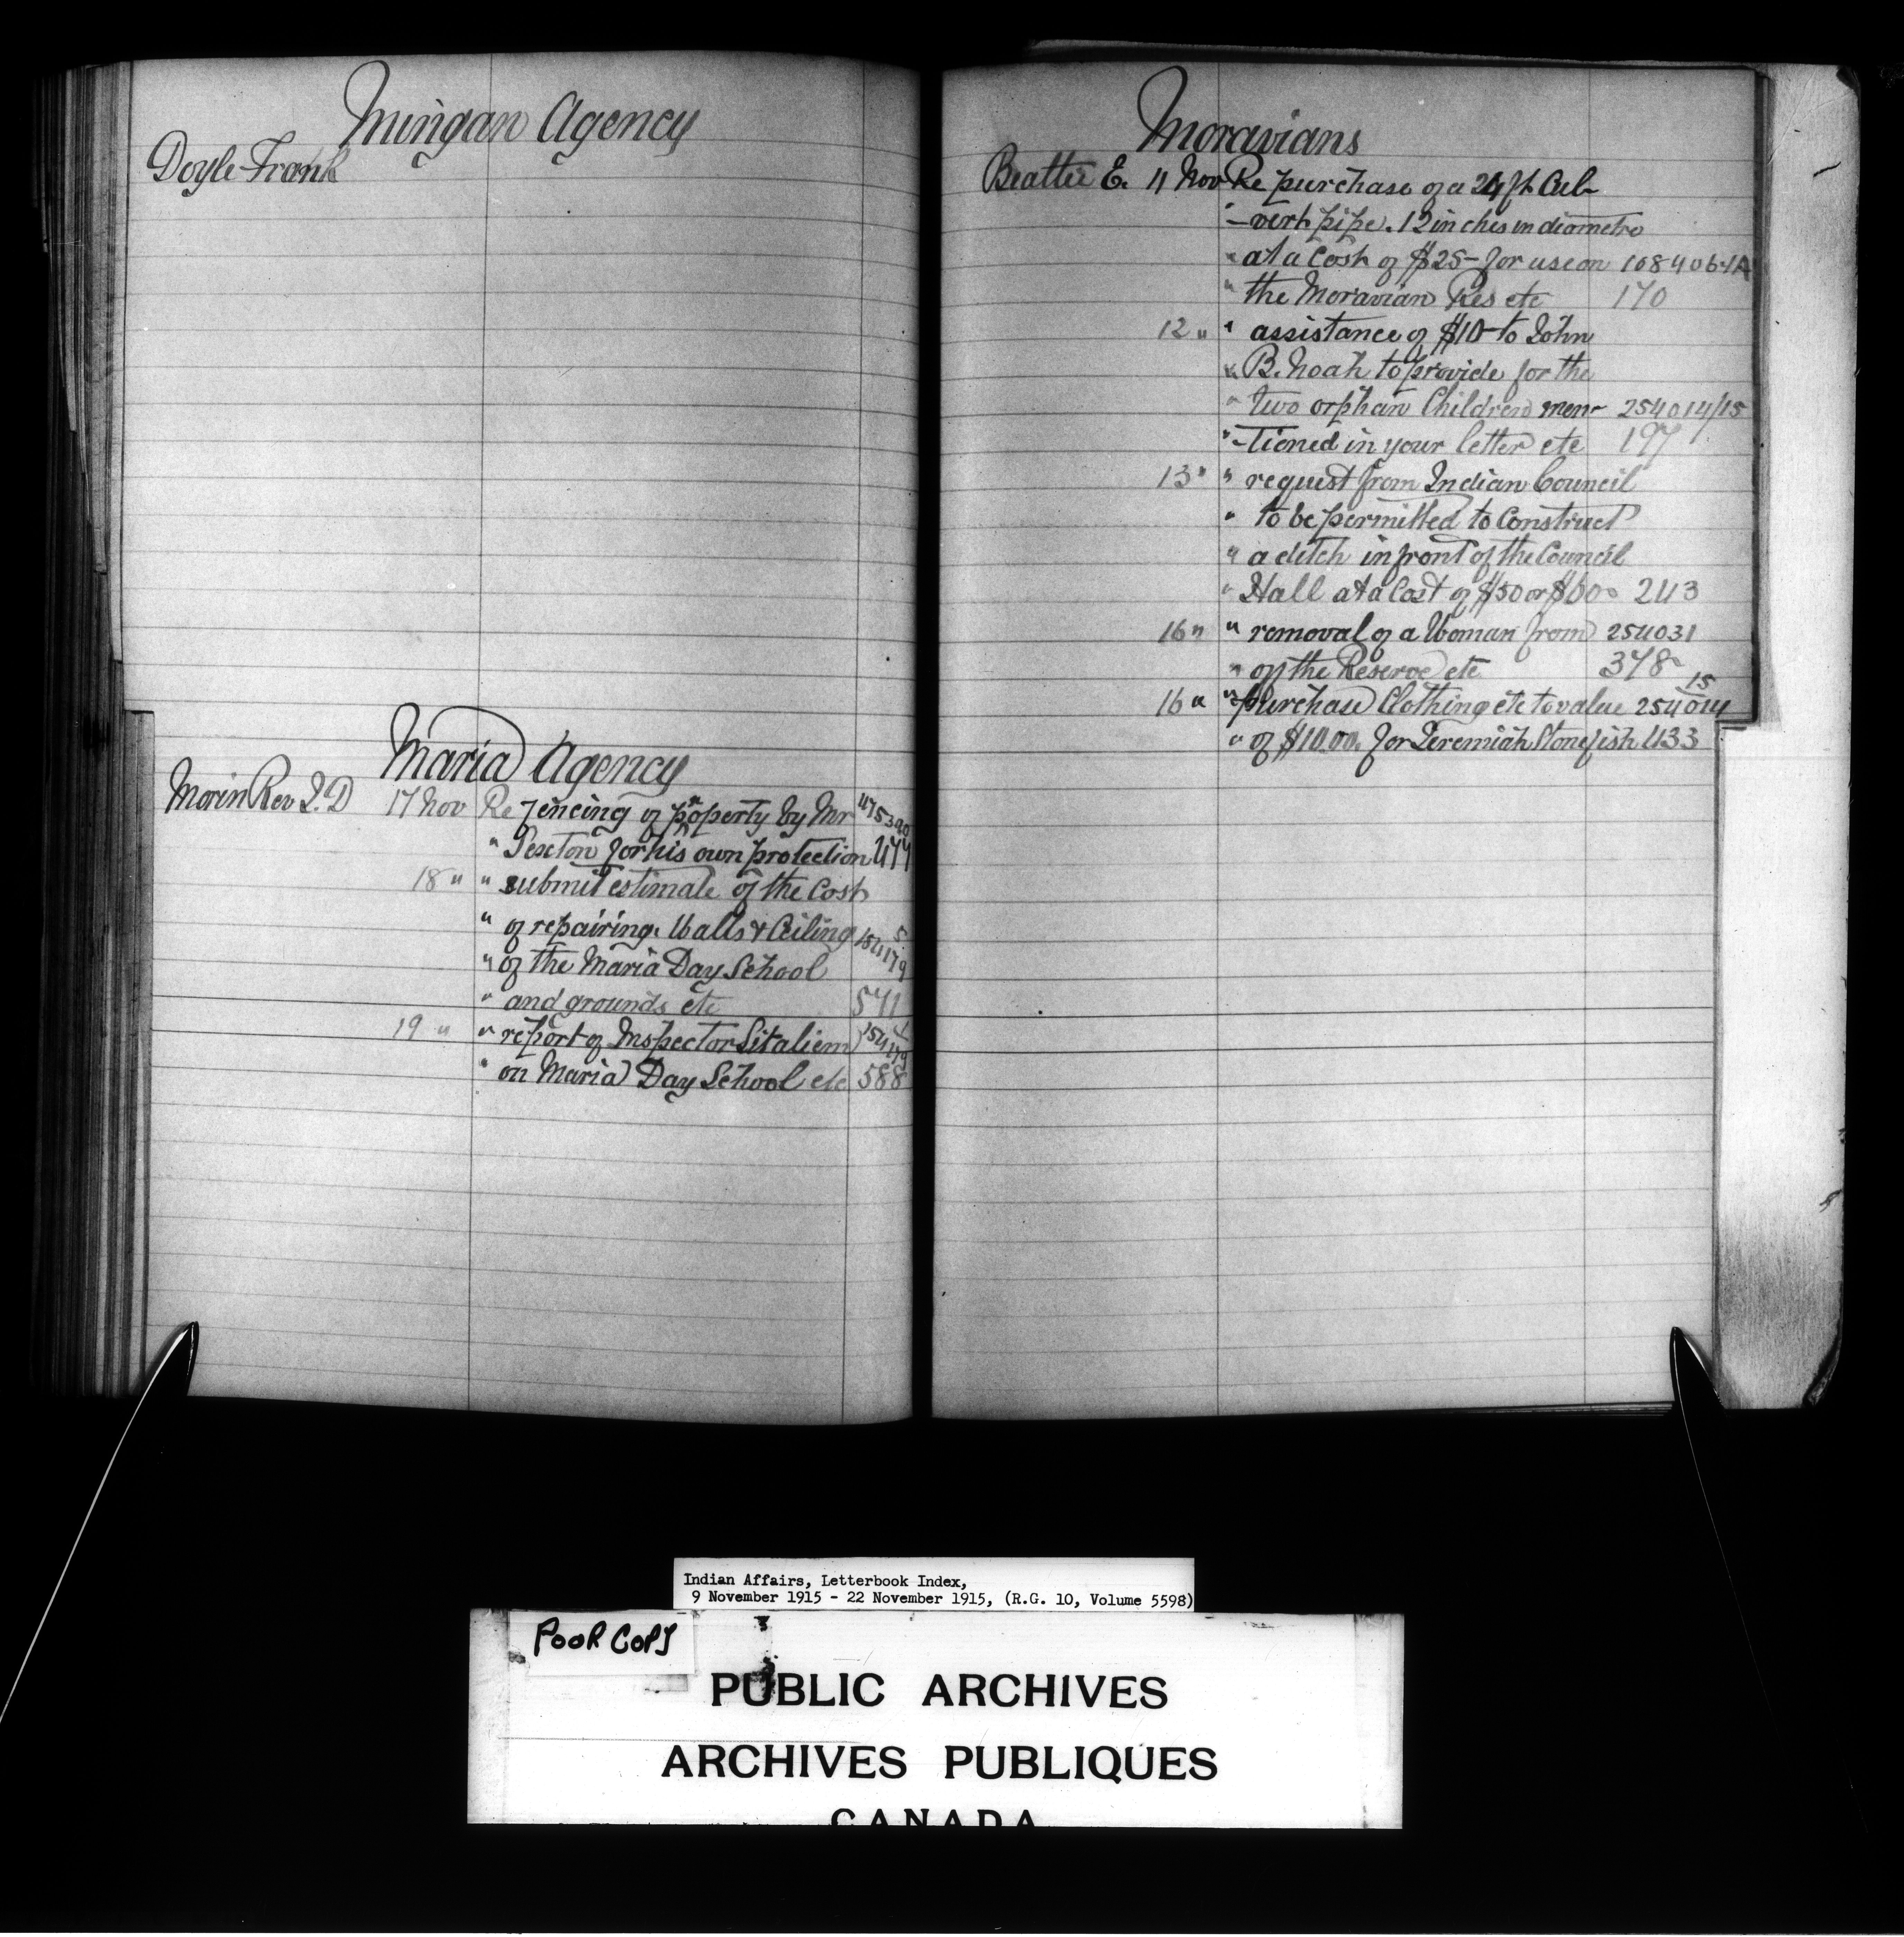 Mingan Agency
Doyle Frank
Maria Agency
Morin Rev J. D 17 Nov Re fencing of property by Mr 475390
" Sexton for his own protection 477
18 " " submit estimate of the Cost
" of repairing Walls & Ceiling 5
" of the Maria Day School 154179
" and grounds etc 571
19 " " report of Inspector 1 154179
" on Maria Day School etc 588
Moravians
Beattie E. 11 Nov Re purchase of a 24 ft Cul-
" -vert pipe. 12 inches in diametre
" at a Cost of $25- for use on 108406-1A
" the Moravian Res etc 170
12 " " assistance of $10- to John
" B. Noah to provide for the
" two orphan Children men- 254014/15
" -tioned in your letter etc 197
13 " " request from Indian Council
" to be permitted to Construct
" a ditch in front of the Council
" Hall at a Cost of $50 or $60 243
16 " " removal of a Woman from 254031
" off the Reserve etc 378
16 " " purchase Clothing etc to value 254014 15
" of $10.00. for Jeremiah Stonefish 433
Indian Affairs, Letterbook Index,
9 November 1915 - 22 November 1915, (R.G. 10, Volume 5598)
POOR COPY
PUBLIC ARCHIVES
ARCHIVES PUBLIQUES
CANADA